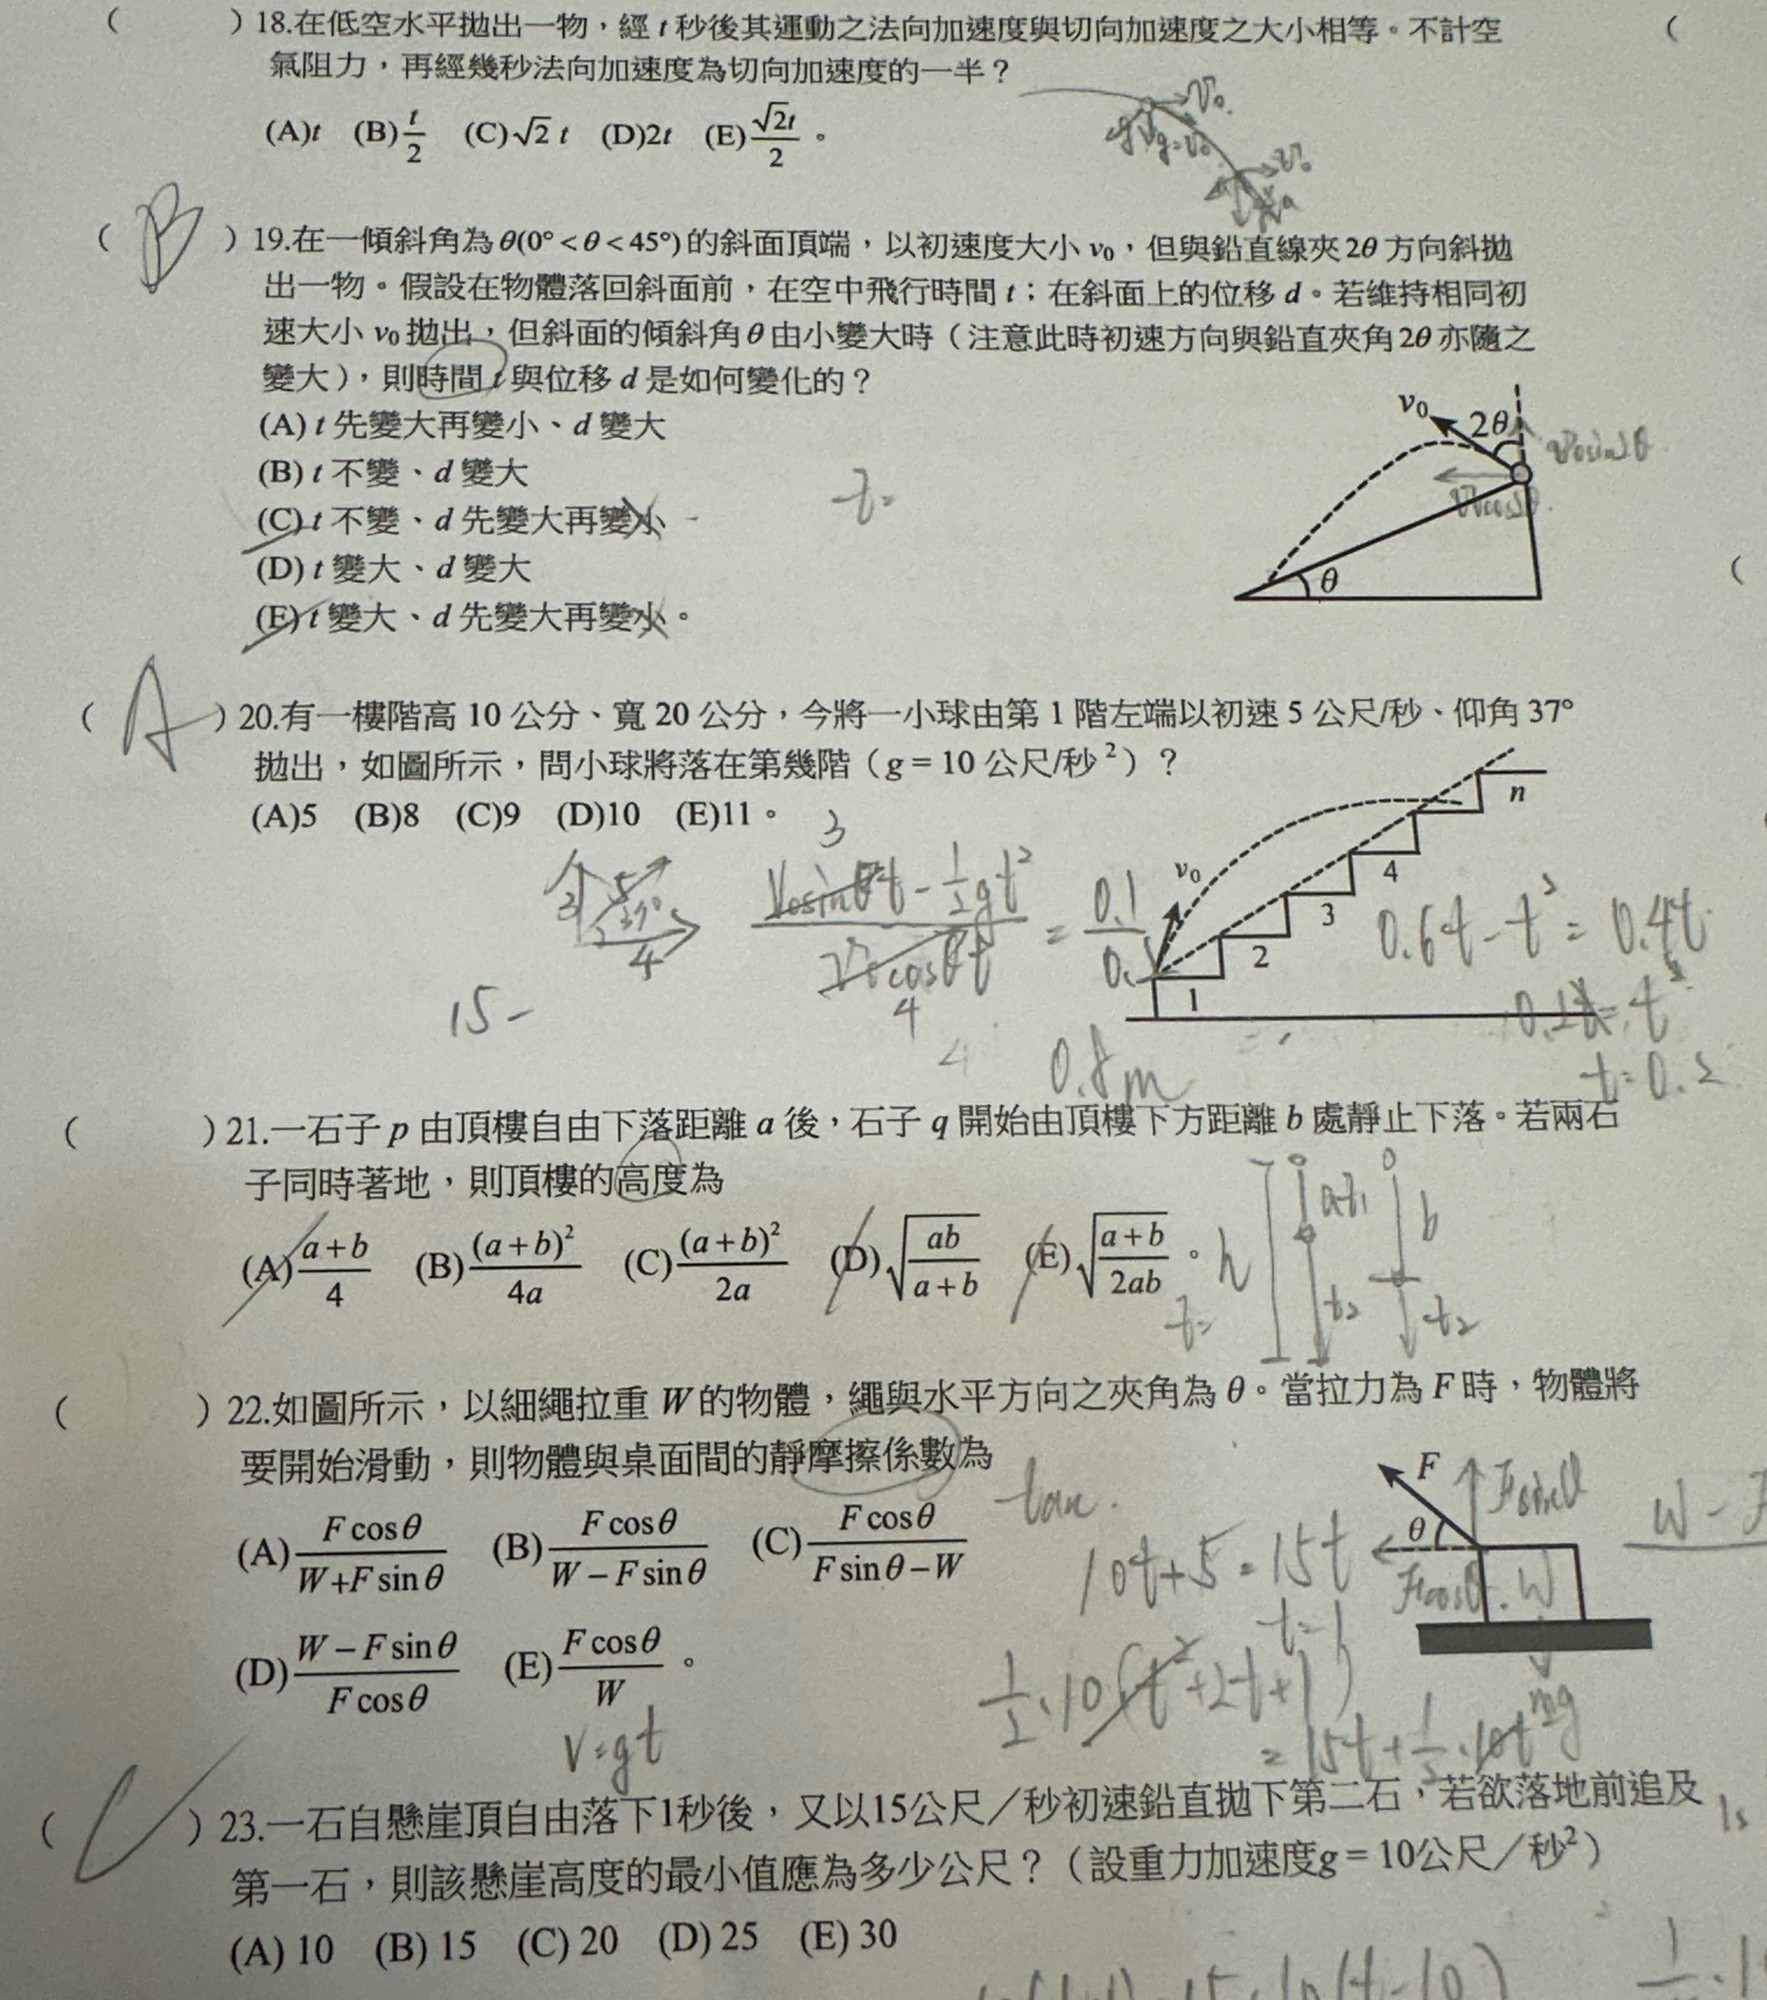 ( )18.在低空水平拋出一物,經 t 秒後其運動之法向加速度與切向加速度之大小相等。不計空
氣阻力,再經幾秒法向加速度為切向加速度的一半?
(A)t (B)t/2 (C)√2 t (D)2t (E)√2t/2。
v₀
(B)19.在一傾斜角為θ(0°<θ<45°)的斜面頂端,以初速度大小 v₀,但與鉛直線夾2θ方向斜拋
出一物。假設在物體落回斜面前,在空中飛行時間 t;在斜面上的位移 d。若維持相同初
速大小 v₀ 拋出,但斜面的傾斜角θ由小變大時(注意此時初速方向與鉛直夾角2θ亦隨之
變大),則時間 t 與位移 d 是如何變化的?
(A) t 先變大再變小、d 變大
(B) t 不變、d 變大
(C) t 不變、d 先變大再變小
(D) t 變大、d 變大
(E) t 變大、d 先變大再變小。
v₀ 2θ
v₀sin2θ
θ
t=
(A)20.有一樓階高 10 公分、寬 20 公分,今將一小球由第 1 階左端以初速 5 公尺/秒、仰角 37°
拋出,如圖所示,問小球將落在第幾階(g = 10 公尺/秒²)?
(A)5 (B)8 (C)9 (D)10 (E)11。
v₀ 1 2 3 4 n
3 5 37° 4
3
V₀sinθt - ½gt² = 0.1
v₀cosθt 0.
4
0.6t - t² = 0.4t
0.2t = t²
t=0.2
15-
4
0.8m
( )21.一石子 p 由頂樓自由下落距離 a 後,石子 q 開始由頂樓下方距離 b 處靜止下落。若兩石
子同時著地,則頂樓的高度為
(A)(a+b)/4 (B)(a+b)²/4a (C)(a+b)²/2a (D)√(ab/(a+b)) (E)√((a+b)/2ab)。
h a t₁ b
t= t₂ t₂
( )22.如圖所示,以細繩拉重 W 的物體,繩與水平方向之夾角為 θ。當拉力為 F 時,物體將
要開始滑動,則物體與桌面間的靜摩擦係數為
(A)Fcosθ/(W+Fsinθ) (B)Fcosθ/(W−Fsinθ) (C)Fcosθ/(Fsinθ−W)
(D)(W−Fsinθ)/Fcosθ (E)Fcosθ/W。
F θ
Fsinθ
Fcosθ
W
mg
W - F
tan
10t+5=15t
t=1
½·10(t²+2t+1)
= 15t + ½·10t
v=gt
(C)23.一石自懸崖頂自由落下1秒後,又以15公尺/秒初速鉛直拋下第二石,若欲落地前追及
第一石,則該懸崖高度的最小值應為多少公尺?(設重力加速度g = 10公尺/秒²)
(A) 10 (B) 15 (C) 20 (D) 25 (E) 30
1s